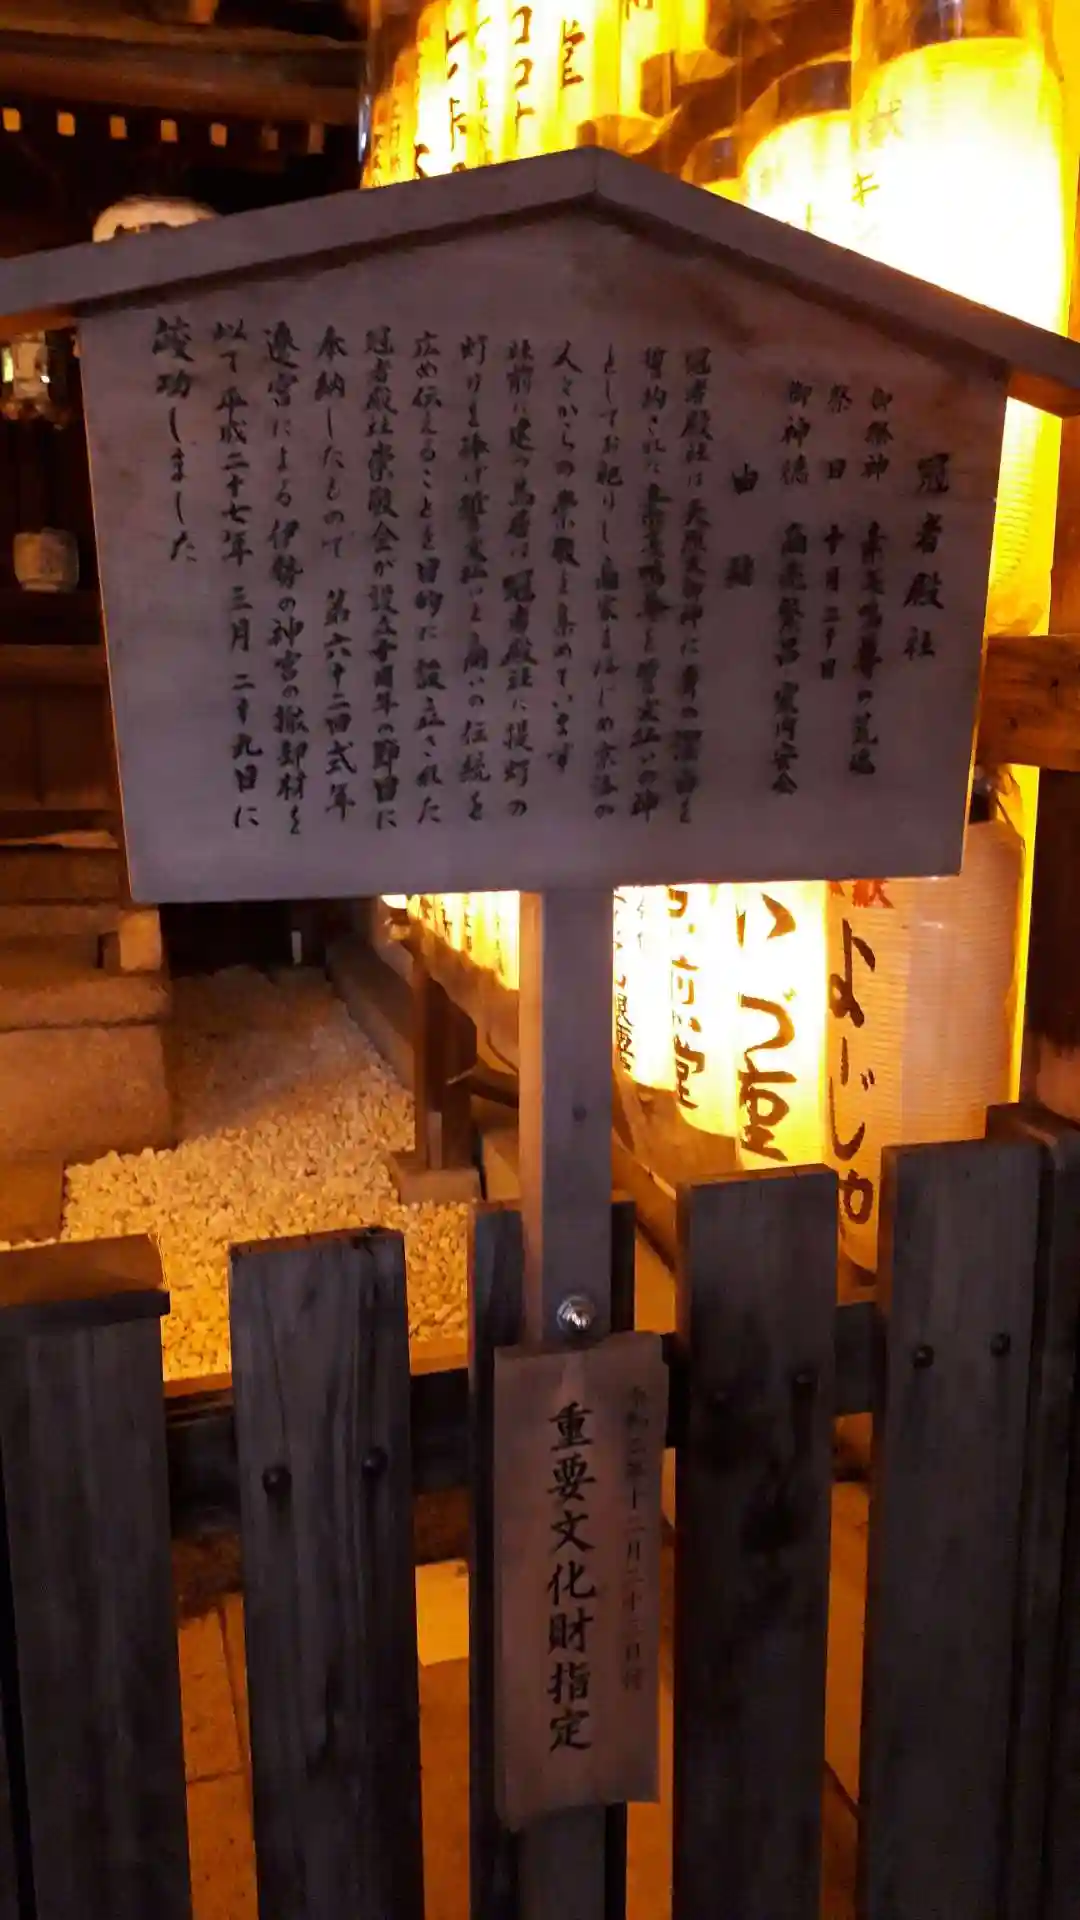 冠者殿社
御祭神 素戔嗚尊の荒魂
祭日 十月二十日
御神徳 商売繁昌 家内安全
由緒
冠者殿社は天照大御神に身の潔白を
誓約された素戔嗚尊を誓文払いの神
としてお祀りし商家をはじめ京洛の
人々からの崇敬を集めています
社前に建つ鳥居は冠者殿社に提灯の
灯りを捧げ誓文払いと商いの伝統を
広め伝えることを目的に設立された
冠者殿社崇敬会が設立十周年の節目に
奉納したもので 第六十二回式年
遷宮による伊勢の神宮の撤却材を
以て平成二十七年 三月 二十九日に
竣功しました
令和二年十二月二十三日付
重要文化財指定
いづ重
よーじや